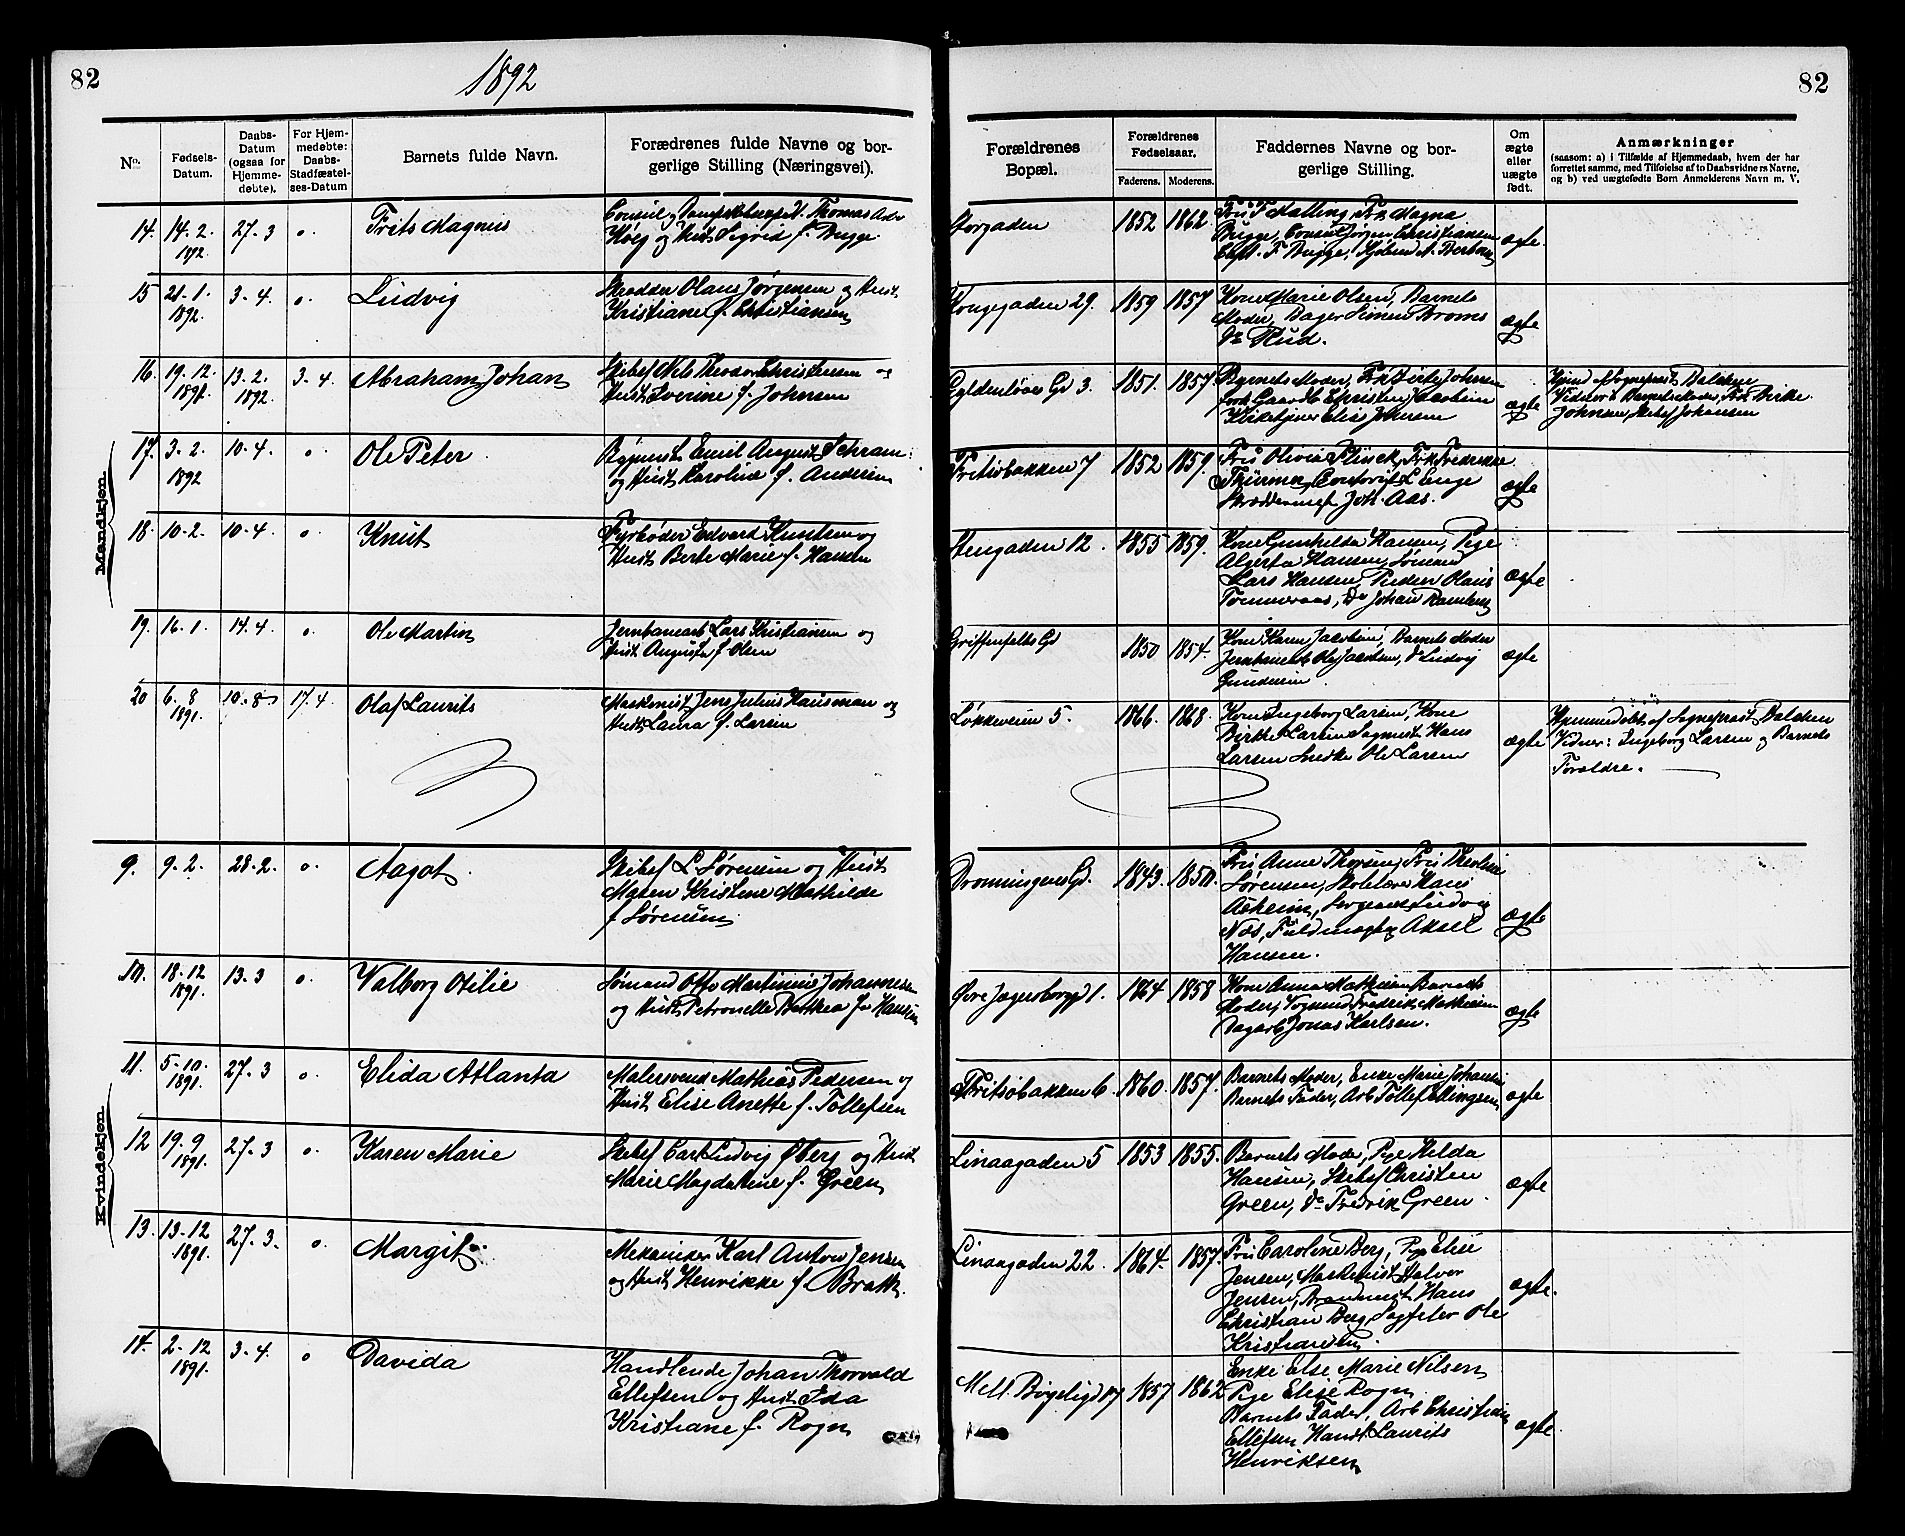 82
1892
82
No.
Fødsels-
Datum.
Daabs-
Datum
(ogsaa for
Hjemme-
døbte).
For Hjem-
medøbte:
Daabs-
Stadfæstel-
ses-Datum
Barnets fulde Navn.
Forædrenes fulde Navne og bor-
gerlige Stilling (Næringsvei).
Forældrenes
Bopæl.
Forældrenes
Fødselsaar.
Faderens. Moderens.
Faddernes Navne og bor-
gerlige Stilling.
Om
ægte
eller
uægte
født.
Anmærkninger
(saasom: a) i Tilfælde af Hjemmedaab, hvem der har
forrettet samme, med Tilføielse af to Daabsvidners Navne,
og b) ved uægtefødte Børn Anmelderens Navn m. V.
Mandkjøn.
14. 14. 2. 1892. 27. 3 o. Frits Magnus
Consul og Thomas
Høeg og Hust. Sigrid f. Bugge.
Storgaden 1852 1862
Fru F Malling, Frk Magna
Bugge, Consul Jørgen Christiansen
Capt. F Bugge,
ægte.
15 21. 1. 1892. 3. 4. o. Ludvig
Skrædder Olaus Jørgensen og Hust
Kristiane f. Christiansen
Kongegaden 29. 1859 1857
Kone Marie Olsen, Barnets
Moder, Bager Simen Broms
Do Rud.
ægte
16. 19. 12. 1891. 13. 2. 1892. 3. 4. Abraham Johan
Skibsf Nils Theodor Christensen og
Hust Severine f. Johnsen
Gyldenløves Gd 3. 1851. 1857.
Barnets Moder, Frk Johnsen
Christen Jacobsen
Elise Johnsen
ægte
Hjemd af Sogneprest Balchen
Vidner: Barnets Moder, Frk Birthe
Johnsen, Skibsf Johansen
17. 3. 2. 1892 10. 4. o. Ole Peter
Emil August Schram
og Hust Karoline f. Andersen
Fritsøbakken 7 1852 1859.
Fru Olivia Flinck, Frk Fredrikke
Thurmer, Lange
Skræddermest Joh. Aas.
ægte
18. 10. 2. 10. 4. o. Knut
Fyrbøder Edvard Knutsen og
Hust Berte Marie f. Hansen
Stengaden 12. 1855 1859.
Kone Gunhilda Hansen, Pige
Algerta Hansen, Sømand
Lars Hansen, Olaus
Tømmeraas, Do Johan
ægte
19. 16. 1. 14. 4. o. Ole Martin
Jernbanearb Lars Kristiansen og
Hust Augusta f. Olsen
Griffenfelts Gd 1850 1854.
Kone Karen Jacobsen, Barnets Moder
Jernbanearb Ole Jacobsen, do Ludvig
Gundersen
ægte
20 6. 8 1891. 10. 8 17. 4 Olaf Laurits
Maskinist Jens Julius Hausman og
Hust Laura f. Larsen
Løkkeveien 5. 1866. 1868.
Kone Ingeborg Larsen, Kone
Birthe Larsen, Hans
Larsen, Snedker Ole Larsen
ægte
Hjemmedøbt af Sogneprest Balchen
Vidner: Ingeborg Larsen og Barnets
Forældre.
Kvindekjøn.
9. 9. 2. 28. 2. o. Aagot
Skibsf L Sørensen og Hust
Maren Kristine Mathilde
f Sørensen
Dronningens Gd. 1843. 1850.
Fru Anne Thorsen, Fru
Sørensen, Skolelærer Hans
Askeim, Sergeant Ludvig
Næs, Fuldmægtig Aksel
Hansen.
ægte
10. 18. 12 1891. 13. 3 o. Valborg Otilie
Sømand Otto Martinius Johannesen
og Hust Petronelle Berthea f. Hansen
Øvre Jegersborggd 1. 1864 1858
Kone Anna Mathisen, Barnets
Moder, Fredrik Mathisen
Dagarb Jonas Karlsen.
ægte
11. 5. 10. 1891. 27. 3 o. Elida Atlanta
Malersvend Mathias Pedersen og
Hust Elise Anette f. Tollefsen
Fritsøbakken 6. 1860. 1857.
Barnets Moder, Enke Marie Johansen
Barnets Fader, Arb Tollef Ellingsen
ægte
12 19. 9 1891. 27. 3 o. Karen Marie
Skibsf Carl Ludvig Øberg og Hust
Marie Magdalene f. Green
Linaagaden 5 1853 1855.
Barnets Moder, Pige Hilda
Hansen, Skibsf Christen
Green, Do Fredrik Green.
ægte
13. 13. 12 1891. 27. 3. o. Margit
Mekaniker Karl Anton Jensen
og Hust Henrikke f. Bratt.
Linaagaden 22. 1864. 1857.
Fru Caroline Berg, Pige Elise
Jensen, Maskinist Halvor
Jensen, Brandmest Hans
Christian Berg, Sagfiler Ole
Kristiansen.
ægte.
14. 2. 12 1891. 3. 4. o Davida
Handlende Johan Thorvald
Ellefsen og Hust Ida
Kristiane f. Rogn
Mell. Bøgeligd 17 1857 1862
Enke Else Marie Nilsen
Pige Elise Rogn
Barnets Fader, Arb Christian
Ellefsen, Handl Laurits
Henriksen
ægte.